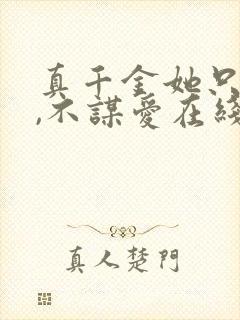 真千金她只
,不謀愛在綫
真人楚門